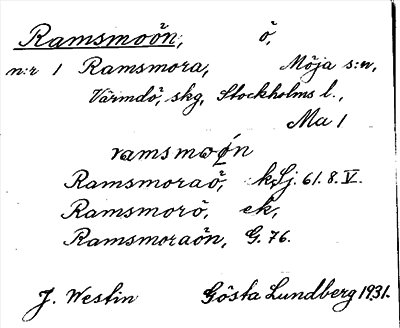 Ramsmoön, ö,
n:r 1 Ramsmora, Möja s:n,
Värmdö, skg, Stockholms l.,
Ma 1
ramsmoǫ́n
Ramsmoraö, k, Lj. 61. 8. V.
Ramsmorö, ek,
Ramsmoraön, G. 76.
J. Westin Gösta Lundberg 1931.